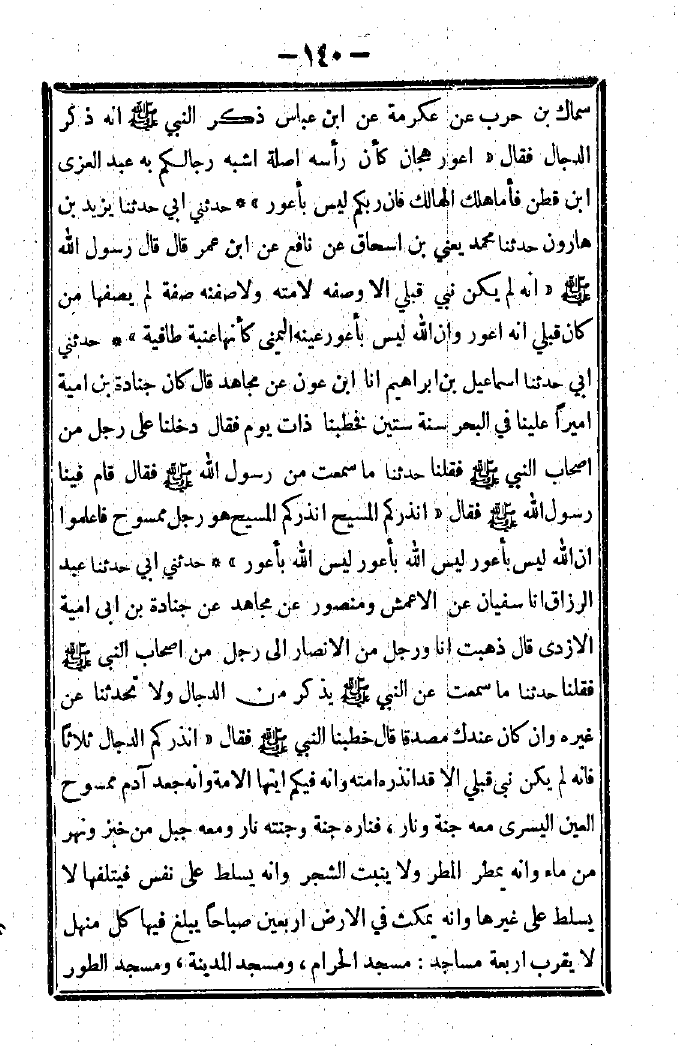 — ١٤٠ —
سماك بن حرب عن عكرمة عن ابن عباس ذكر النبي ﷺ انه ذكر
الدجال فقال « اعور هجان كأن رأسه اصلة اشبه رجالكم به عبد العزى
ابن قطن فأما هلك الهالك فان ربكم ليس بأعور » * حدثني ابي حدثنا يزيد بن
هارون حدثنا محمد يعني بن اسحاق عن نافع عن ابن عمر قال قال رسول الله
ﷺ « انه لم يكن نبي قبلي الا وصفه لامته ولاصفنه صفة لم يصفها من
كان قبلي انه اعور وان الله ليس بأعور عينه اليمنى كأنها عنبة طافية » * حدثني
ابي حدثنا اسماعيل بن ابراهيم انا ابن عون عن مجاهد قال كان جنادة بن امية
اميراً علينا في البحر سنة ستين فخطبنا ذات يوم فقال دخلنا على رجل من
اصحاب النبي ﷺ فقلنا حدثنا ما سمعت من رسول الله ﷺ فقال قام فينا
رسول الله ﷺ فقال « انذركم المسيح انذركم المسيح هو رجل ممسوح فاعلموا
ان الله ليس بأعور ليس الله بأعور ليس الله بأعور » * حدثني ابي حدثنا عبد
الرزاق انا سفيان عن الاعمش ومنصور عن مجاهد عن جنادة بن ابى امية
الازدى قال ذهبت انا ورجل من الانصار الى رجل من اصحاب النبي ﷺ
فقلنا حدثنا ما سمعت عن النبي ﷺ يذكر من الدجال ولا تحدثنا عن
غيره وان كان عندك مصدقا قال خطبنا النبي ﷺ فقال « انذركم الدجال ثلاثاً
فانه لم يكن نبى قبلي الا قد انذره امته وانه فيكم ايتها الامة وانه جعد آدم ممسوح
العين اليسرى معه جنة ونار ، فناره جنة وجنته نار ومعه جبل من خبز ونهر
من ماء وانه يمطر المطر ولا ينبت الشجر وانه يسلط على نفس فيتلفها لا
يسلط على غيرها وانه يمكث في الارض اربعين صباحاً يبلغ فيها كل منهل
لا يقرب اربعة مساجد : مسجد الحرام ، ومسجد المدينة ، ومسجد الطور